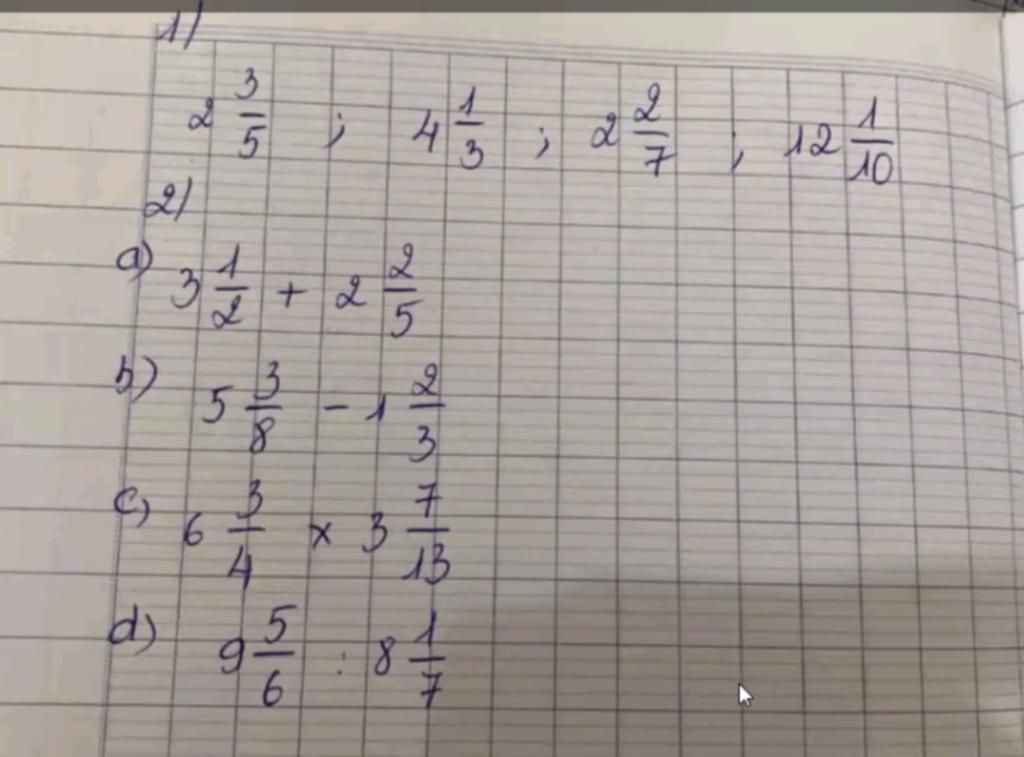 1)
2 3/5 ; 4 1/3 ; 2 2/7 ; 12 1/10
2)
a) 3 1/2 + 2 2/5
b) 5 3/8 - 1 2/3
c) 6 3/4 x 3 7/13
d) 9 5/6 : 8 1/7